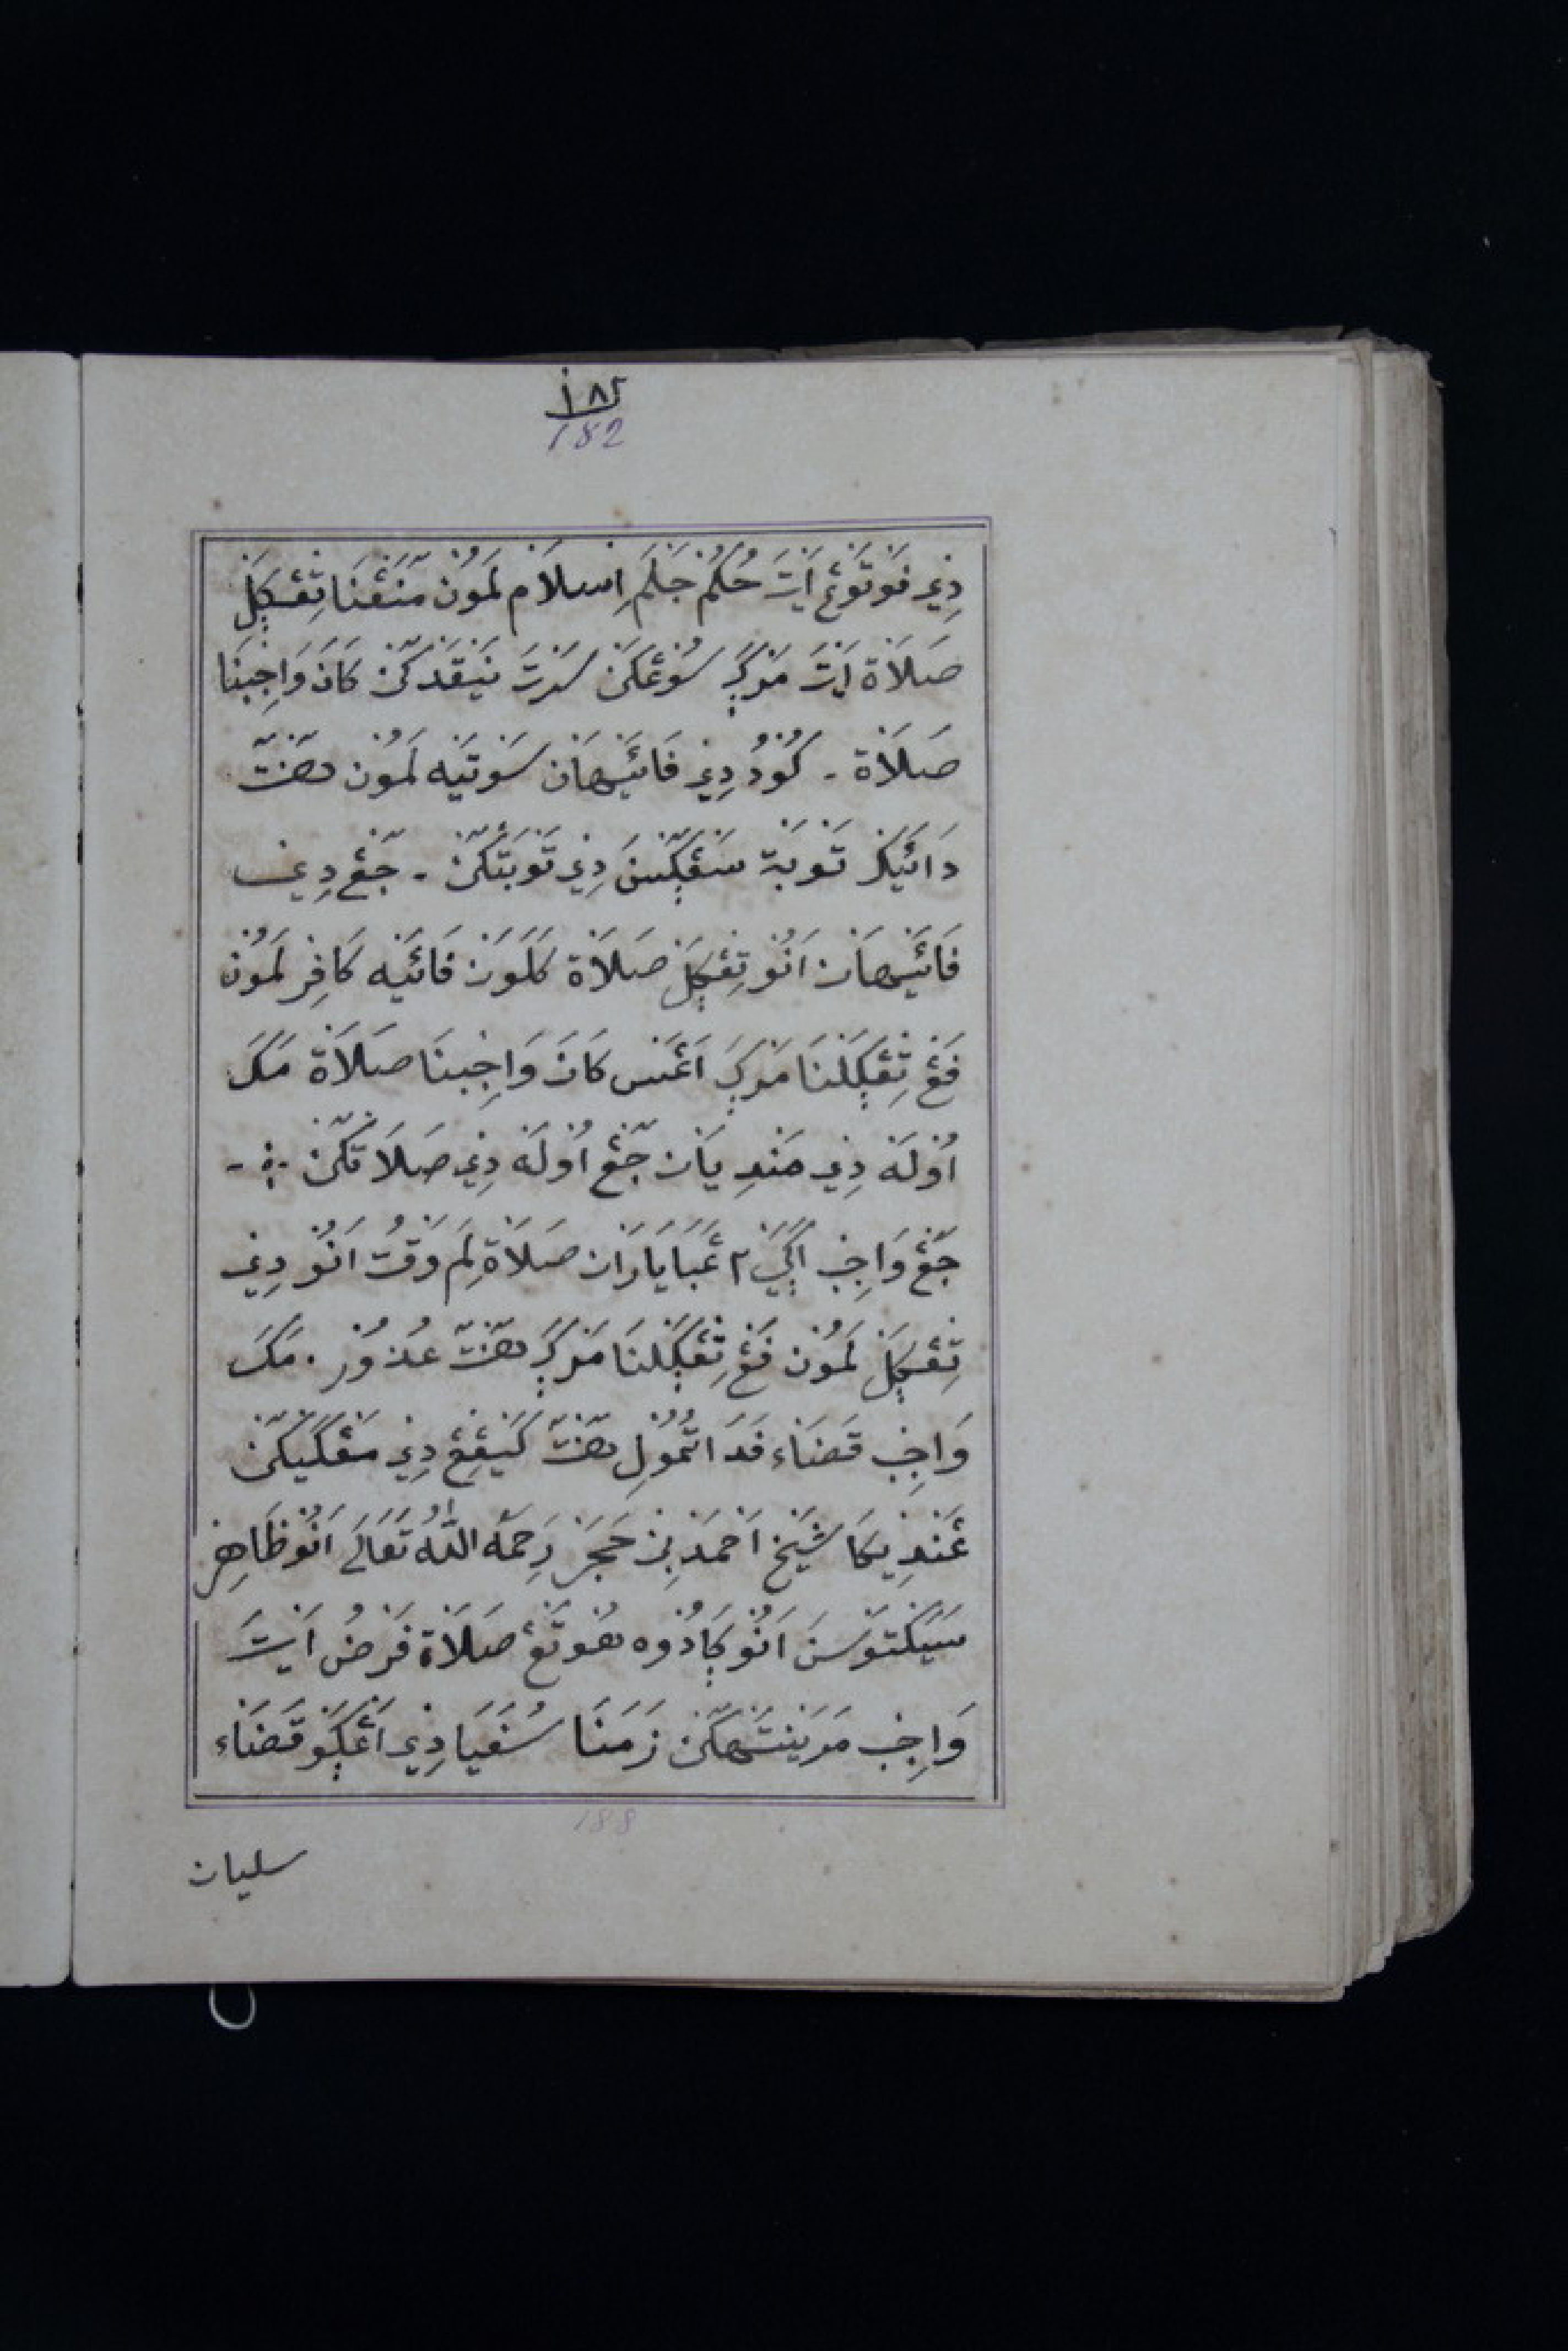 ١٨٢
182
دِيْ فَوْتَوْعْ اَيْتَ حُكُمْ جَلْمَ اِسْلاَمْ لَمُوْنْ مَنَعْنَا تِڠْݢَلْ
صَلاَةْ اَيْتَ مَرْݢَ سُوْعْكَنْ سَرْتَ نَيْقَدْكَنْ كَانَ وَاجِبْنَا
صَلاَةْ - كُوْدُ دِيْ فَائَيْهَانْ سَوْتَيْه لَمُوْنْ هَنْتَ
دَائَيْكَرْ تَوْبَةْ سَڠْݢَسْنَ دِيْ تَوْبَتْكَنْ - جَڠْ دِيْ
فَائَيْهَانْ اَنُوْ تِڠْݢَلْ صَلاَةْ كَلَوَنْ فَائَيْه كَافِرْ لَمُوْنْ
فَڠْ تِڠْݢَلْنَا مَرْݢَ اَڠَسْ كَانَ وَاجِبْنَا صَلاَةْ مَكَ
اُوْلَهْ دِيْ مَنْدِيَانْ جَڠْ اُوْلَهْ دِيْ صَلاَتْكَنْ ؞ -
جَڠْ وَاجِبْ اَݢَيْ٢ ڠَبَايَارَانْ صَلاَةْ لِمَ وَقْتُ اَنُوْ دِيْ
تِڠْݢَلْ لَمُوْنْ فَڠْ تِڠْݢَلْنَا مَرْݢَ هَنْتَ عُذُوْرْ . مَكَ
وَاجِبْ قَضَاءْ فَدَ اتُمُوْلِ هَنْتَ كَيْڠِڠْ دِيْ مَڠْكَيْكَنْ
عَنْدِيْكَا شَيْخْ اَحْمَدْ بِنْ حَجَرْ رَحِمَهُ اللّٰهُ تَعَالَى اَنُوْ ظَاهِرْ
سَيَكْتَوْسَنَ اَنُوْ ݢَادُوْه هُوْتَڠْ صَلاَةْ فَرْضُ اَيْتَ
وَاجِبْ مَرَيْنْتَهْكَنْ زَمَنَا سُفَيَا دِيْ اَڠْݢَوْ قَضَاءْ
188
سليان